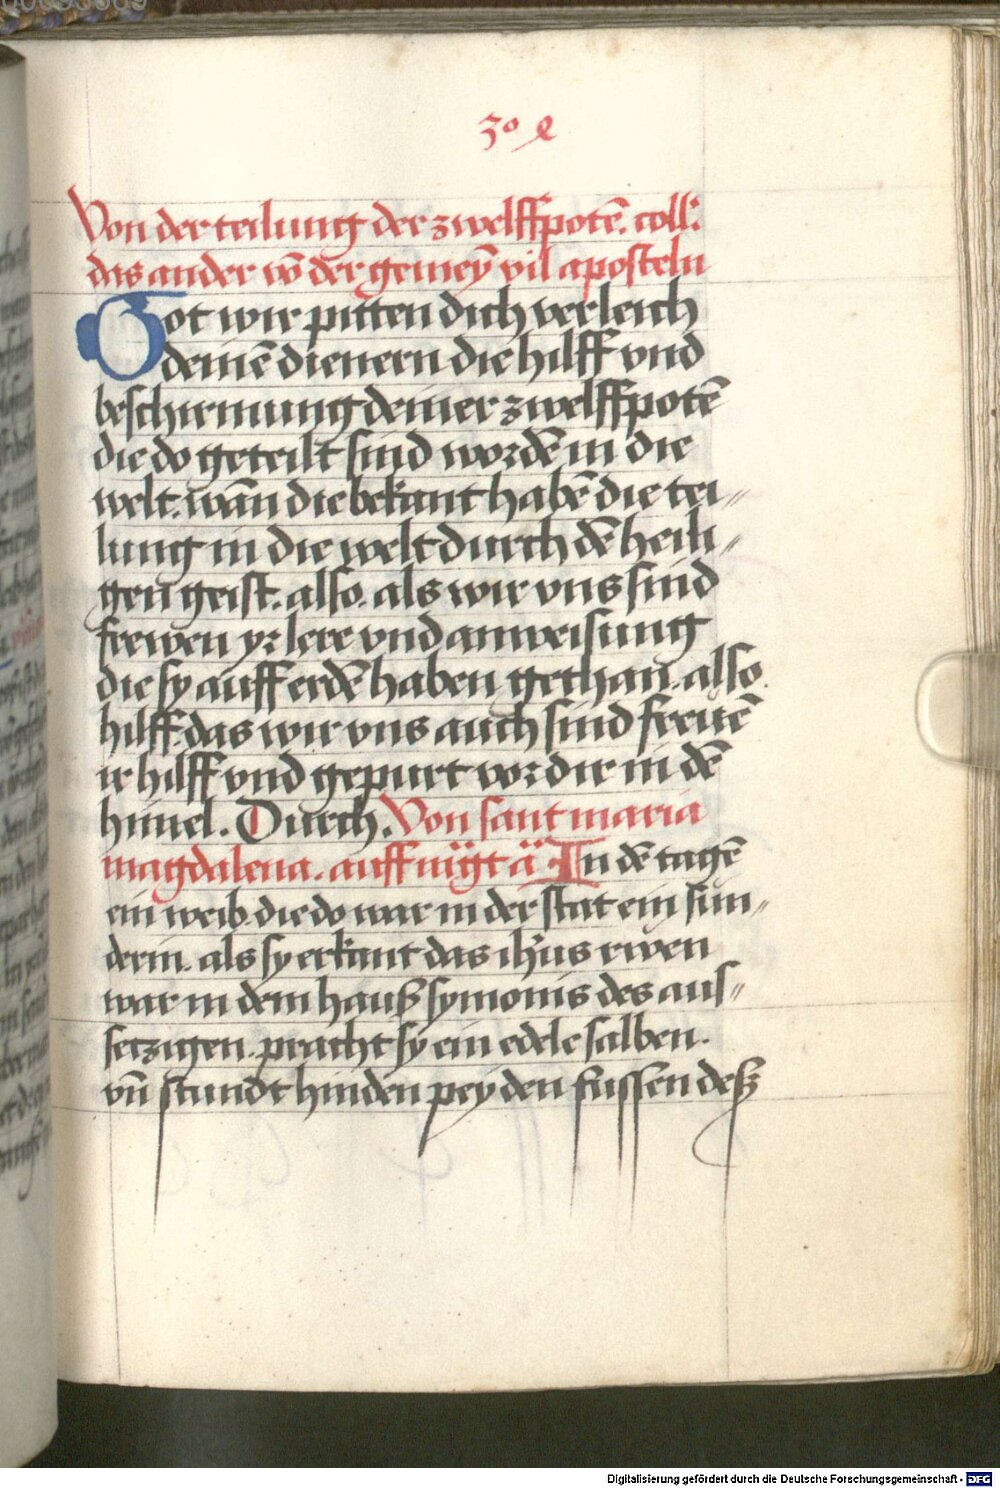 3º e
Von der teilung der zwelffpotē. coll:
das ander vō der gemeȳ vil aposteln
Got wir pitten dich verleich
deinē dienern die hilff vnd
beschirmung deiner zwelffpotē
die do geteilt sind wordē in die
welt. wān die bekant habē die tei〃
lung in die welt durch dē heili〃
gen geist. also. als wir vns sind
frewen yr lere vnd anweisung
die sy auff erdē haben gethan. also
hilff. das wir vns auch sind frewē
ir hilff vnd gepurt vor dir in dē
himel. Durch. Von sant maria
magdalena. auff mg̈t ā In dē tagē
ein weib die do war in der stat ein sün〃
derin. als sy erkant das ih̄us rwen
war in dem hauß symonis des aus〃
setzigen. pracht sy ein edele salben.
vn̄ stundt hinden pey den fussen deß
Digitalisierung gefördert durch die Deutsche Forschungsgemeinschaft - DFG